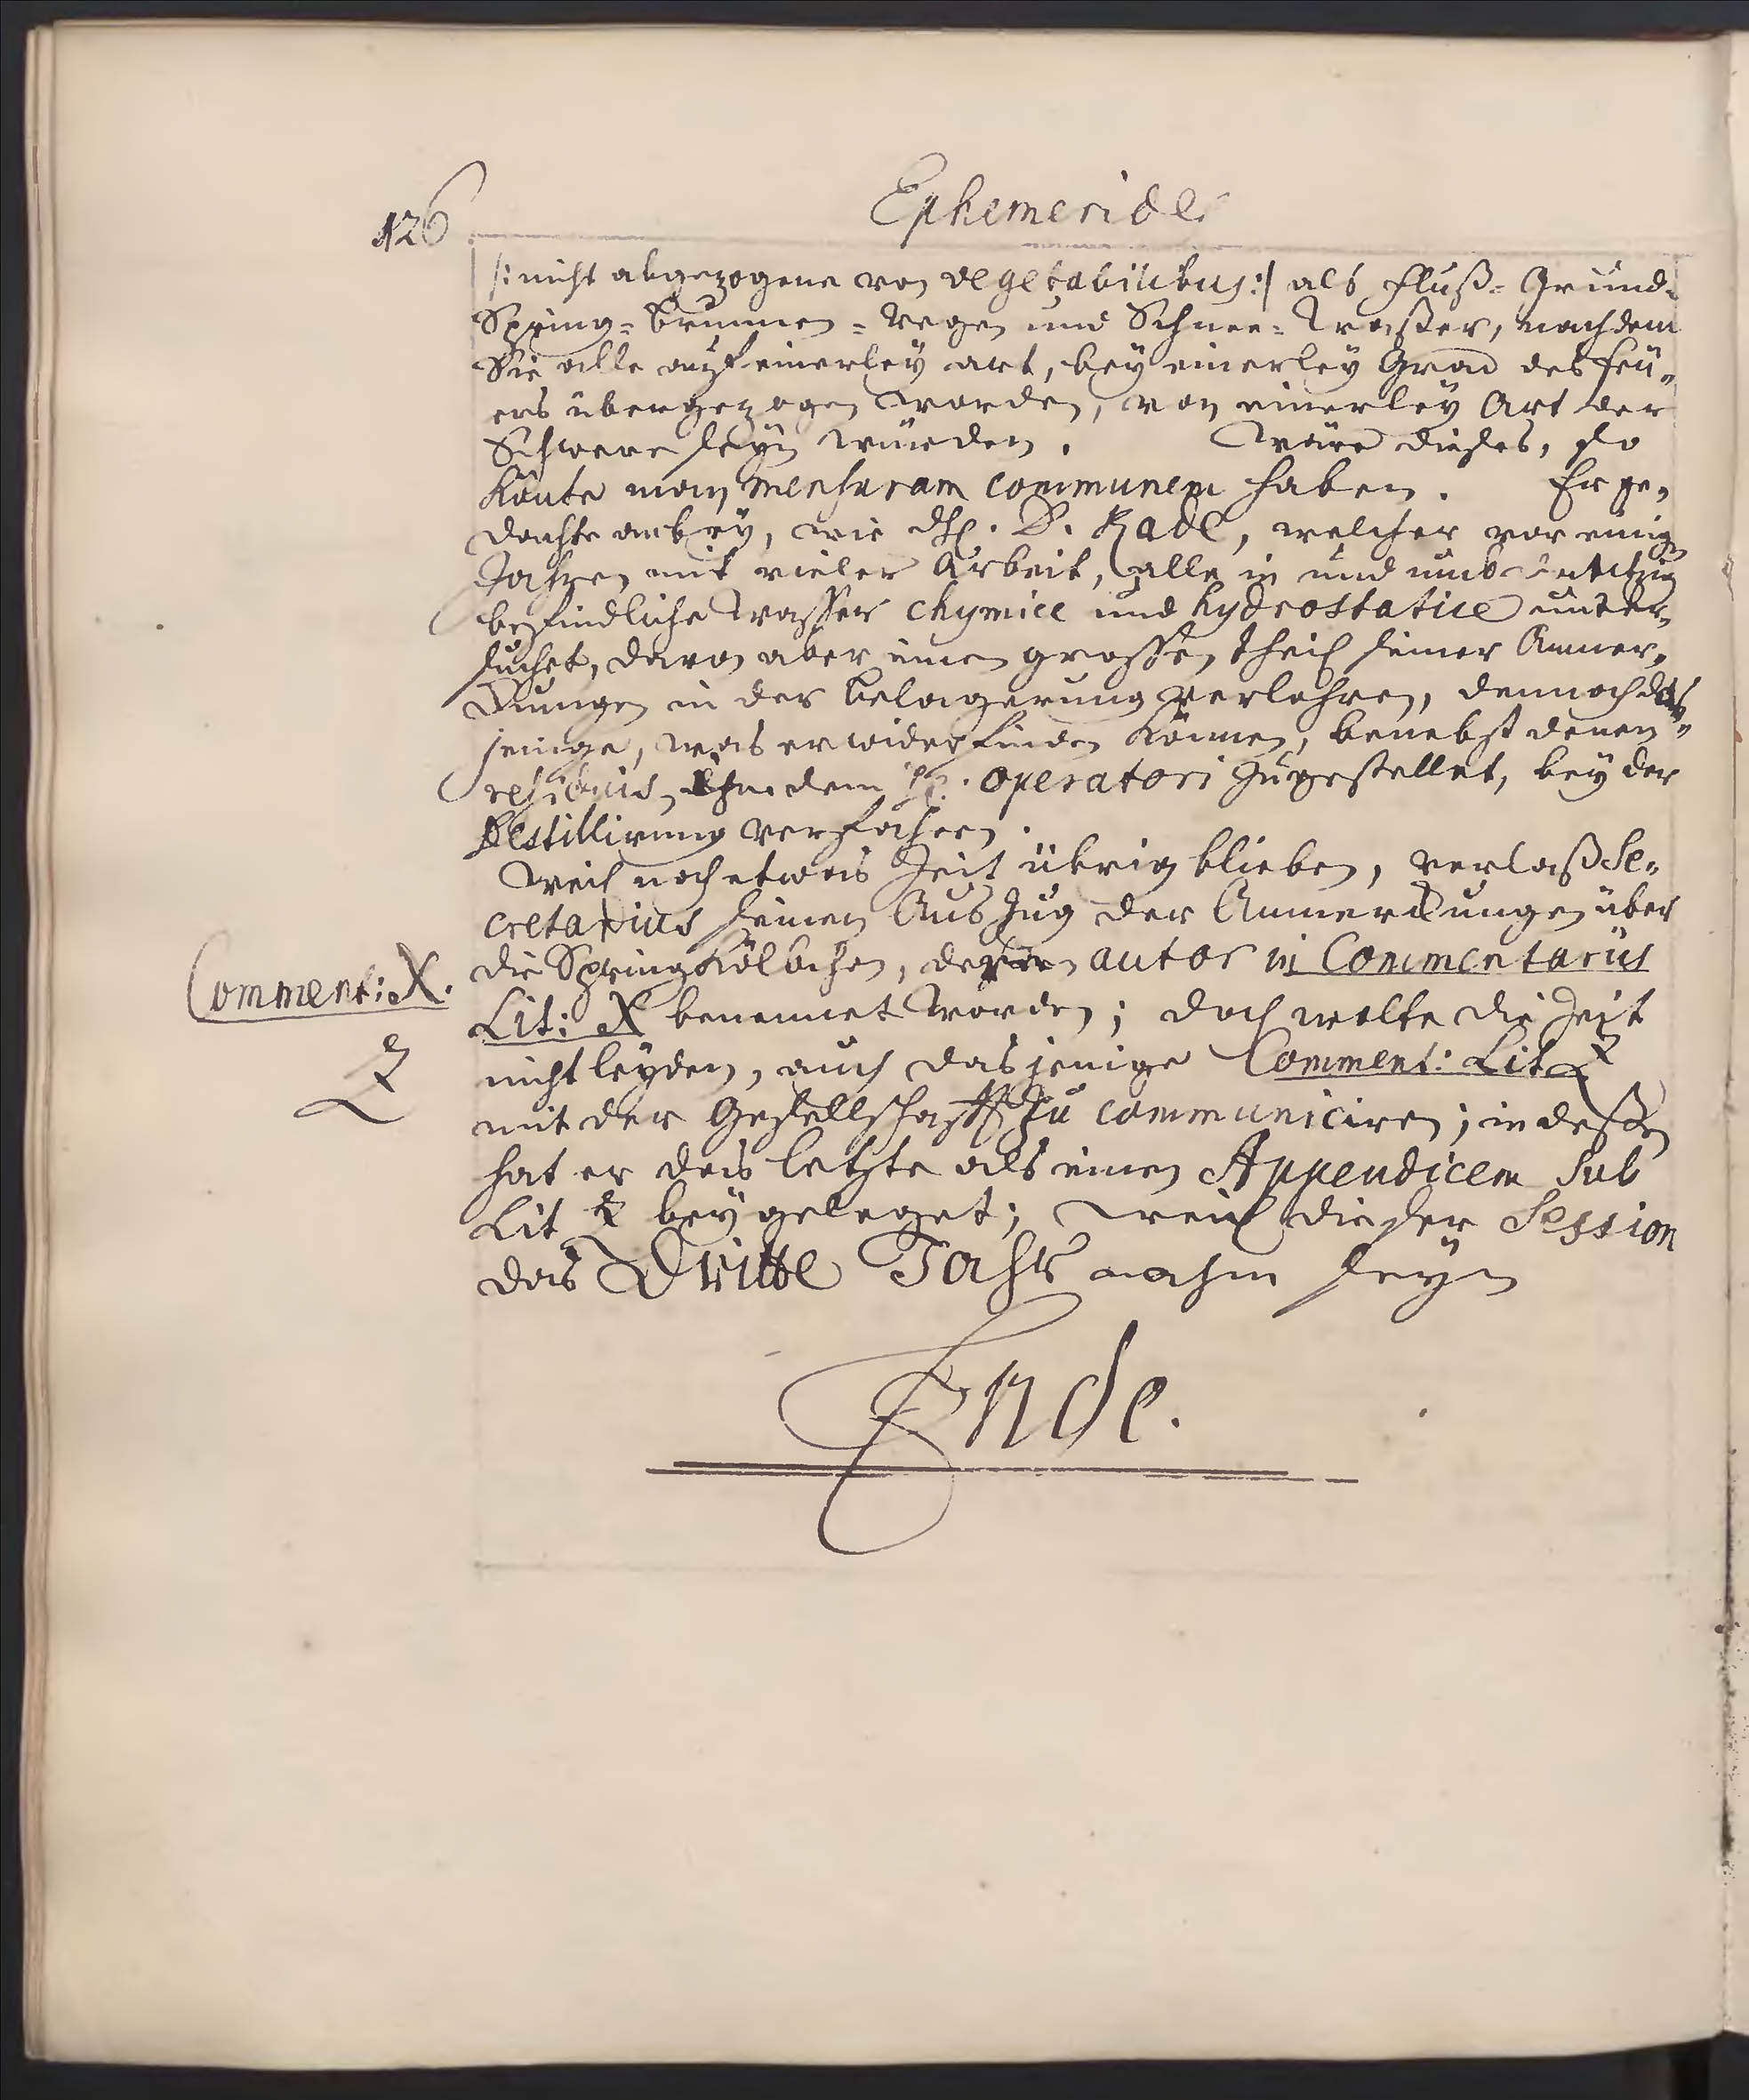 126
Ephemerides
/: nicht abgezogene von vegetabilibus :/ als Fluß= Grund=
Spring= Brunnen= Regen und Schnee= Waßer, nachdem
Sie alle auf einerley art, bey einerley Grad des Feü„
ers übergezogen worden, von einerley Art der
Schwere seyn würden. Wäre dieses, so
könte man mensuram communem haben. Er ge„
dachte anbey, wie H. D. Kade, welcher vor einig
Jahren mit vieler Arbeit, alle in und umb Dantzig
befindliche Wasser chymice und hydrostatice unter„
suchet, davon aber einen grossen theil seiner Anmer„
kungen in der Belagerung verlohren, dennoch das„
jenige, was er wider finden können, benebst denen
residuis, Ihm dem H. operatori zugestellet, bey der
Destillirung verfahren.
Weil noch etwas Zeit übrig blieben, verlaß Se„
cretarius seinen Auszug der Anmerkungen über
die Spring Kölbchen, deren autor in Commentariis
Comment: X.
Lit: X benennet worden; doch wolte die Zeit
nicht leyden, auch dasjenige Comment: Lit Z
Z
mit der Gesellschafft zu communiciren; indeßen
hat er das letzte als einen Appendicem sub
Lit Z beygeleget; Weil dieser Session
das Dritte Jahr nahm seyn
Ende.